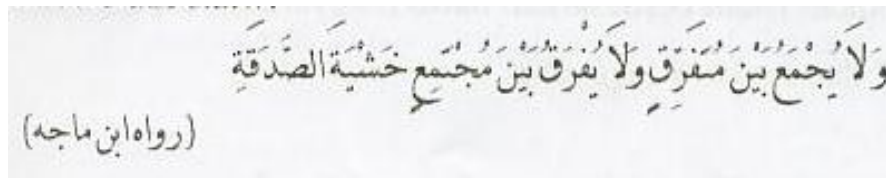 وَلَا يُجْمَعُ بَيْنَ مُتَفَرِّقٍ وَلَا يُفْرَقُ بَيْنَ مُجْتَمِعٍ خَشْيَةَ الصَّدَقَةِ
(رواه ابن ماجه)